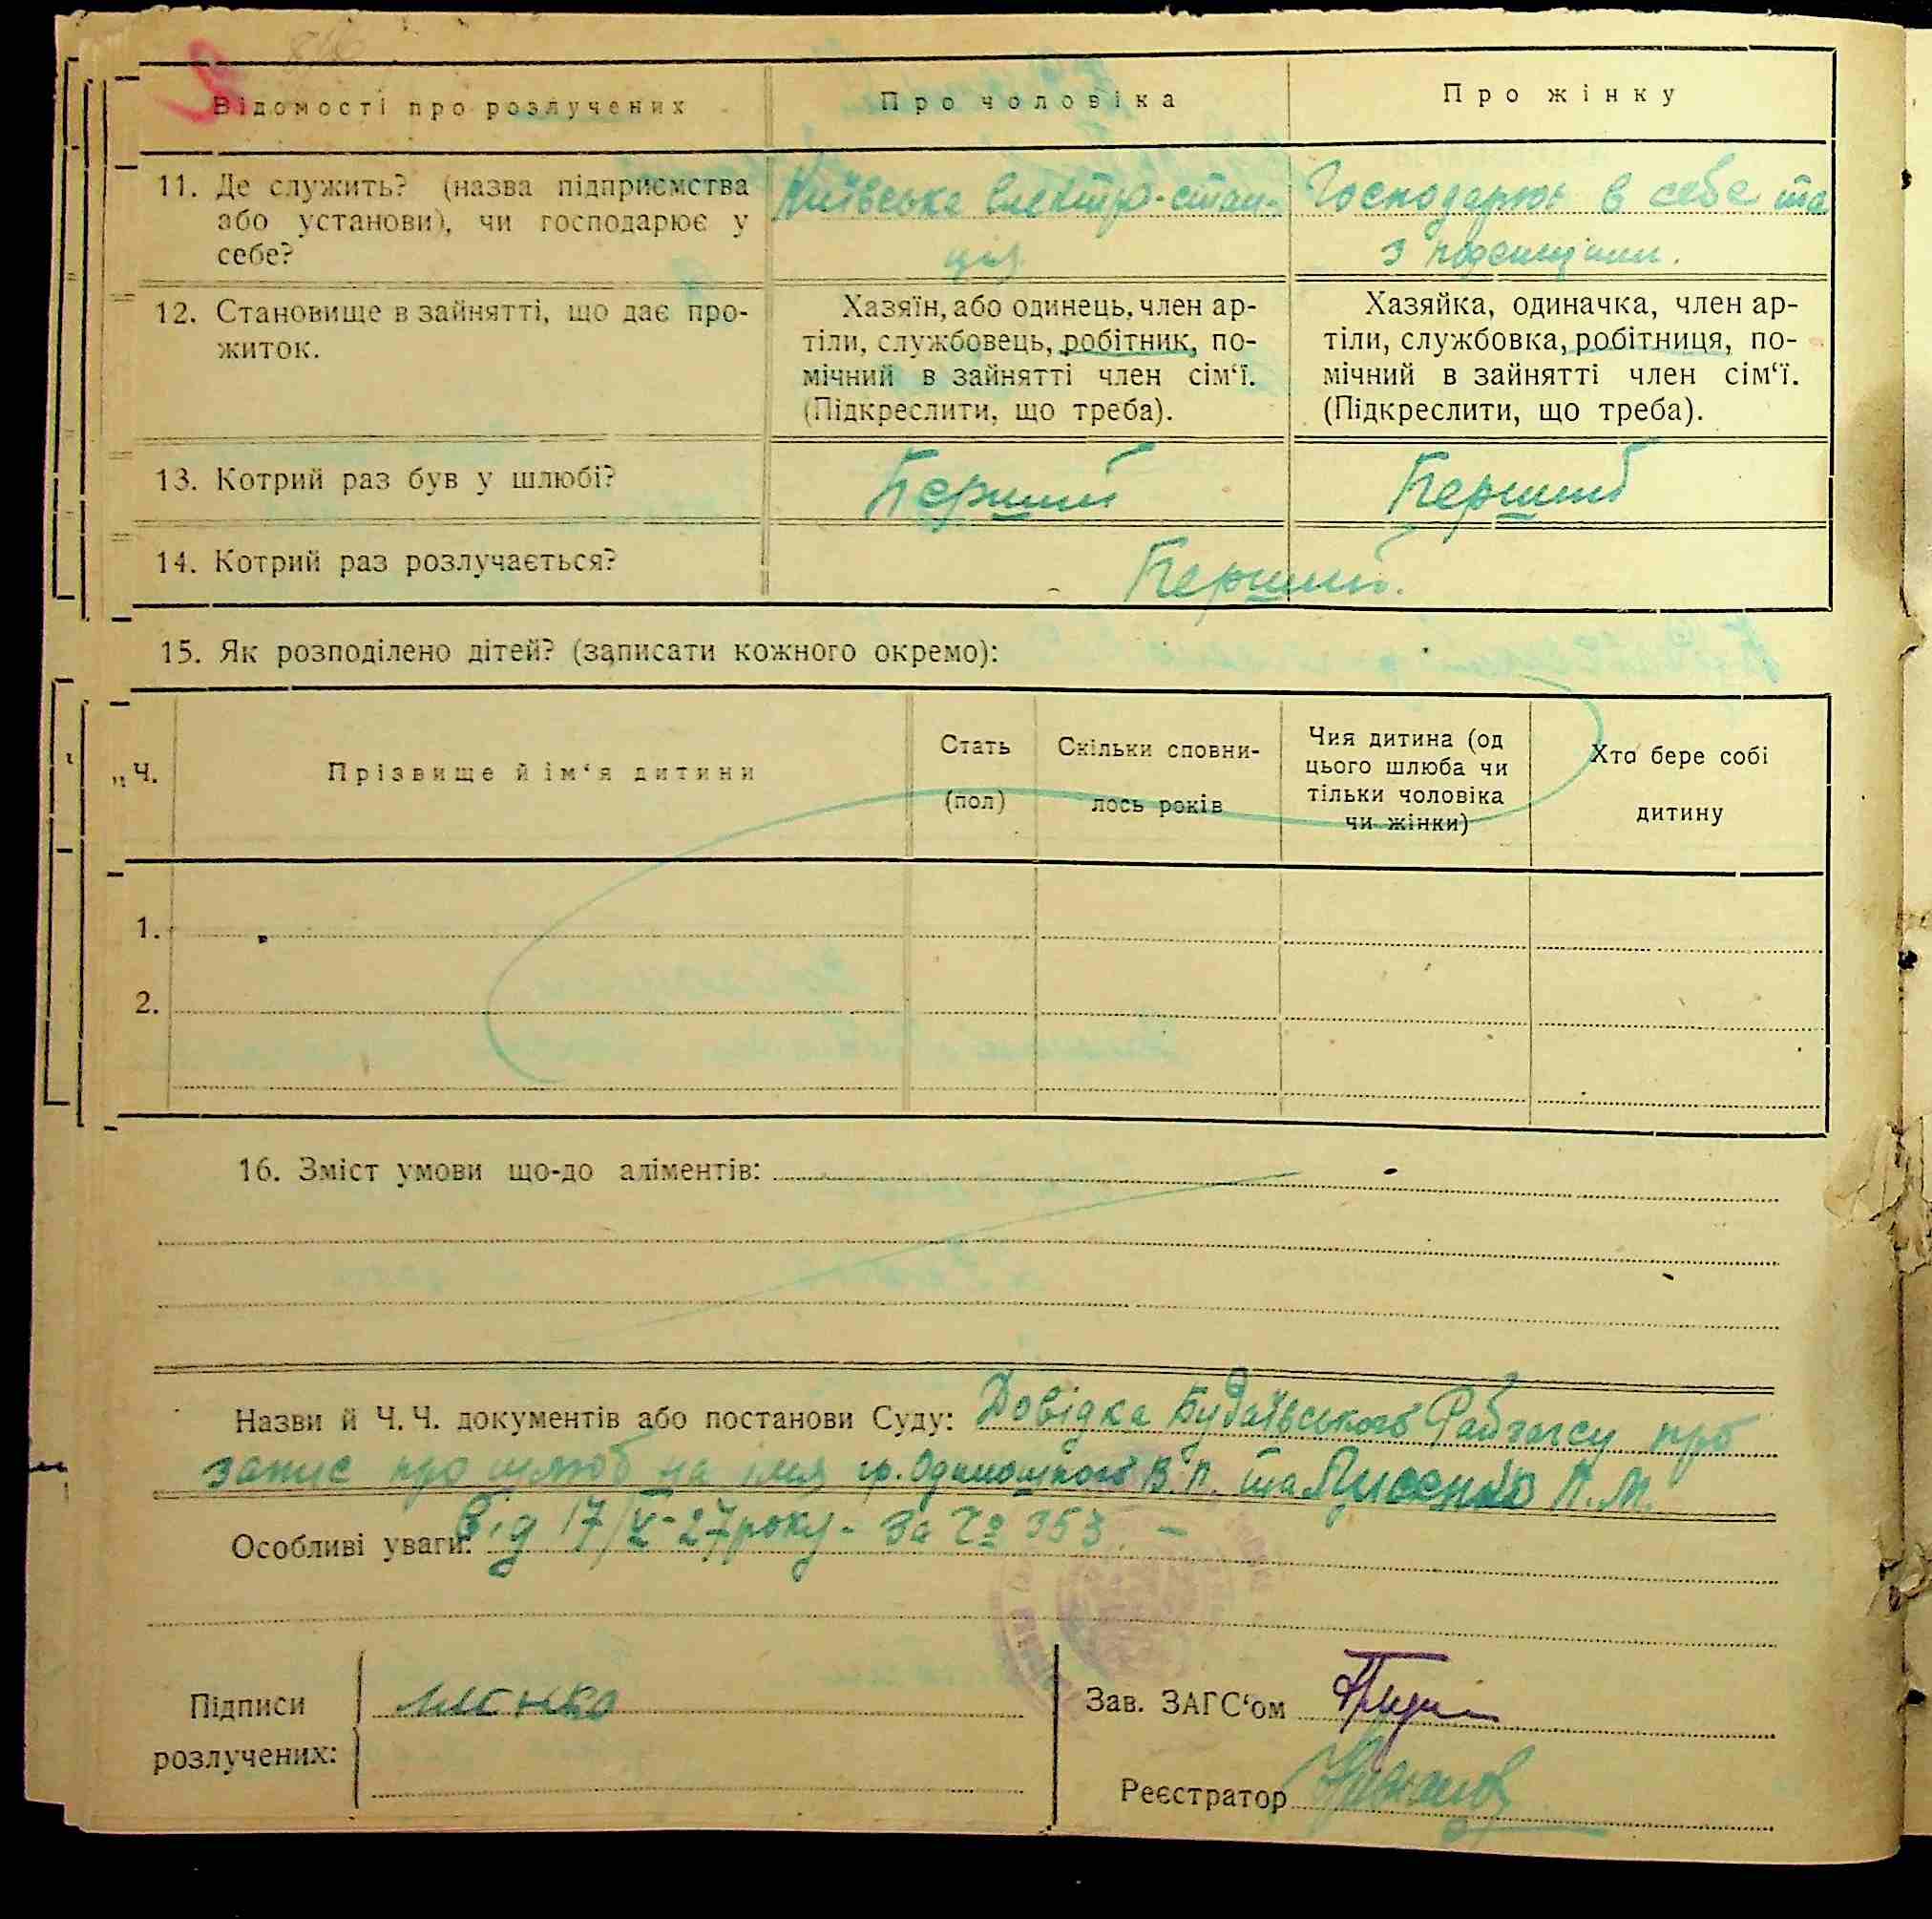 Відомості про розлучених
Про чоловіка
Про жінку
11. Де служить? (назва підприємства
або установи), чи господарює у
себе?
Київська Електро-стан-
ція
Господарює в себе та
з
12. Становище в зайнятті, що дає про-
житок.
Хазяїн, або одинець, член ар-
тіли, службовець, робітник, по-
мічний в зайнятті член сім‘ї.
(Підкреслити, що треба).
Хазяйка, одиначка, член ар-
тіли, службовка, робітниця, по-
мічний в зайнятті член сім‘ї.
(Підкреслити, що треба).
13. Котрий раз був у шлюбі?
Перший
Перший
14. Котрий раз розлучається?
Перший.
15. Як розподілено дітей? (записати кожного окремо):
Ч.
Прізвище й ім‘я дитини
Стать
(пол)
Скільки сповни-
лось років
Чия дитина (од
цього шлюба чи
тільки чоловіка
чи жінки)
Хто бере собі
дитину
1.
2.
16. Зміст умови що-до аліментів:
Назви й Ч. Ч. документів або постанови Суду: Довідка Будаївського Райзагсу про
запис про шлюб на імя гр. В. П. та Лисенко П. М.
Особливі уваги: Від 17/V-27 року - за № 353. -
Підписи
розлучених:
Зав. ЗАГС‘ом
Реєстратор